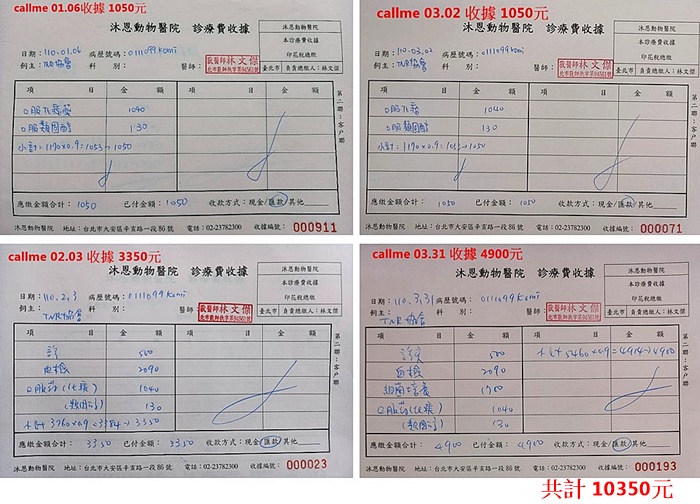 callme 01.06收據 1050元
沐恩動物醫院 診療費收據
沐恩動物醫院
本診療費收據
印花稅總繳
臺北市 負責總繳人:林文傑
日期:110.01.06 病歷號碼:0111099Komi
飼主:TNR協會 科 別: 醫師:
獸醫師林文傑
項 目 金 額 項 目 金 額
1040
口服類固醇 130
小計=1170x0.9=1053→1050
應繳金額合計:1050 已付金額:1050 收款方式:現金/匯款/其他
第二聯:客戶聯
沐恩動物醫院 地址:台北市大安區辛亥路一段86號 電話:02-23782300 收據編號:000911
callme 03.02 收據 1050元
沐恩動物醫院 診療費收據
沐恩動物醫院
本診療費收據
印花稅總繳
臺北市 負責總繳人:林文傑
日期:110.03.02 病歷號碼:0111099Komi
飼主:TNR協會 科 別: 醫師:
獸醫師林文傑
項 目 金 額 項 目 金 額
1040
口服類固醇 130
小計=1170x0.9=1053→1050
應繳金額合計:1050 已付金額:1050 收款方式:現金/匯款/其他
第二聯:客戶聯
沐恩動物醫院 地址:台北市大安區辛亥路一段86號 電話:02-23782300 收據編號:000071
callme 02.03 收據 3350元
沐恩動物醫院 診療費收據
沐恩動物醫院
本診療費收據
印花稅總繳
臺北市 負責總繳人:林文傑
日期:110.2.3 病歷號碼:0111099Komi
飼主:TNR協會 科 別: 醫師:
獸醫師林文傑
項 目 金 額 項 目 金 額
診 500
血檢 2090
1040
130
小計3760x0.9=3384→3350
應繳金額合計:3350 已付金額:3350 收款方式:現金/匯款/其他
第二聯:客戶聯
沐恩動物醫院 地址:台北市大安區辛亥路一段86號 電話:02-23782300 收據編號:000023
callme 03.31 收據 4900元
沐恩動物醫院 診療費收據
沐恩動物醫院
本診療費收據
印花稅總繳
臺北市 負責總繳人:林文傑
日期:110.3.31 病歷號碼:0111099Komi
飼主:TNR協會 科 別: 醫師:
獸醫師林文傑
項 目 金 額 項 目 金 額
500
血檢 2090
細菌培養
1040
130
應繳金額合計:4900 已付金額:4900 收款方式:現金/匯款/其他
第二聯:客戶聯
沐恩動物醫院 地址:台北市大安區辛亥路一段86號 電話:02-23782300 收據編號:000193
共計 10350元